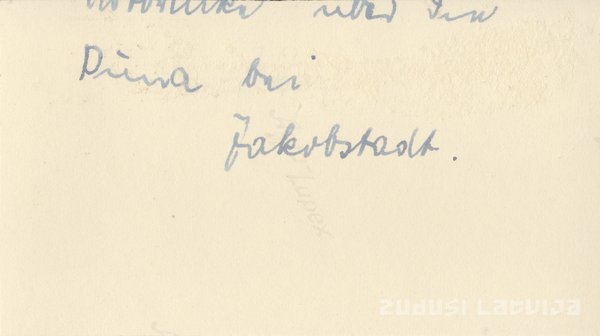 über den
Düna bei
Jakobstadt.
Lupex
zudusi latvija